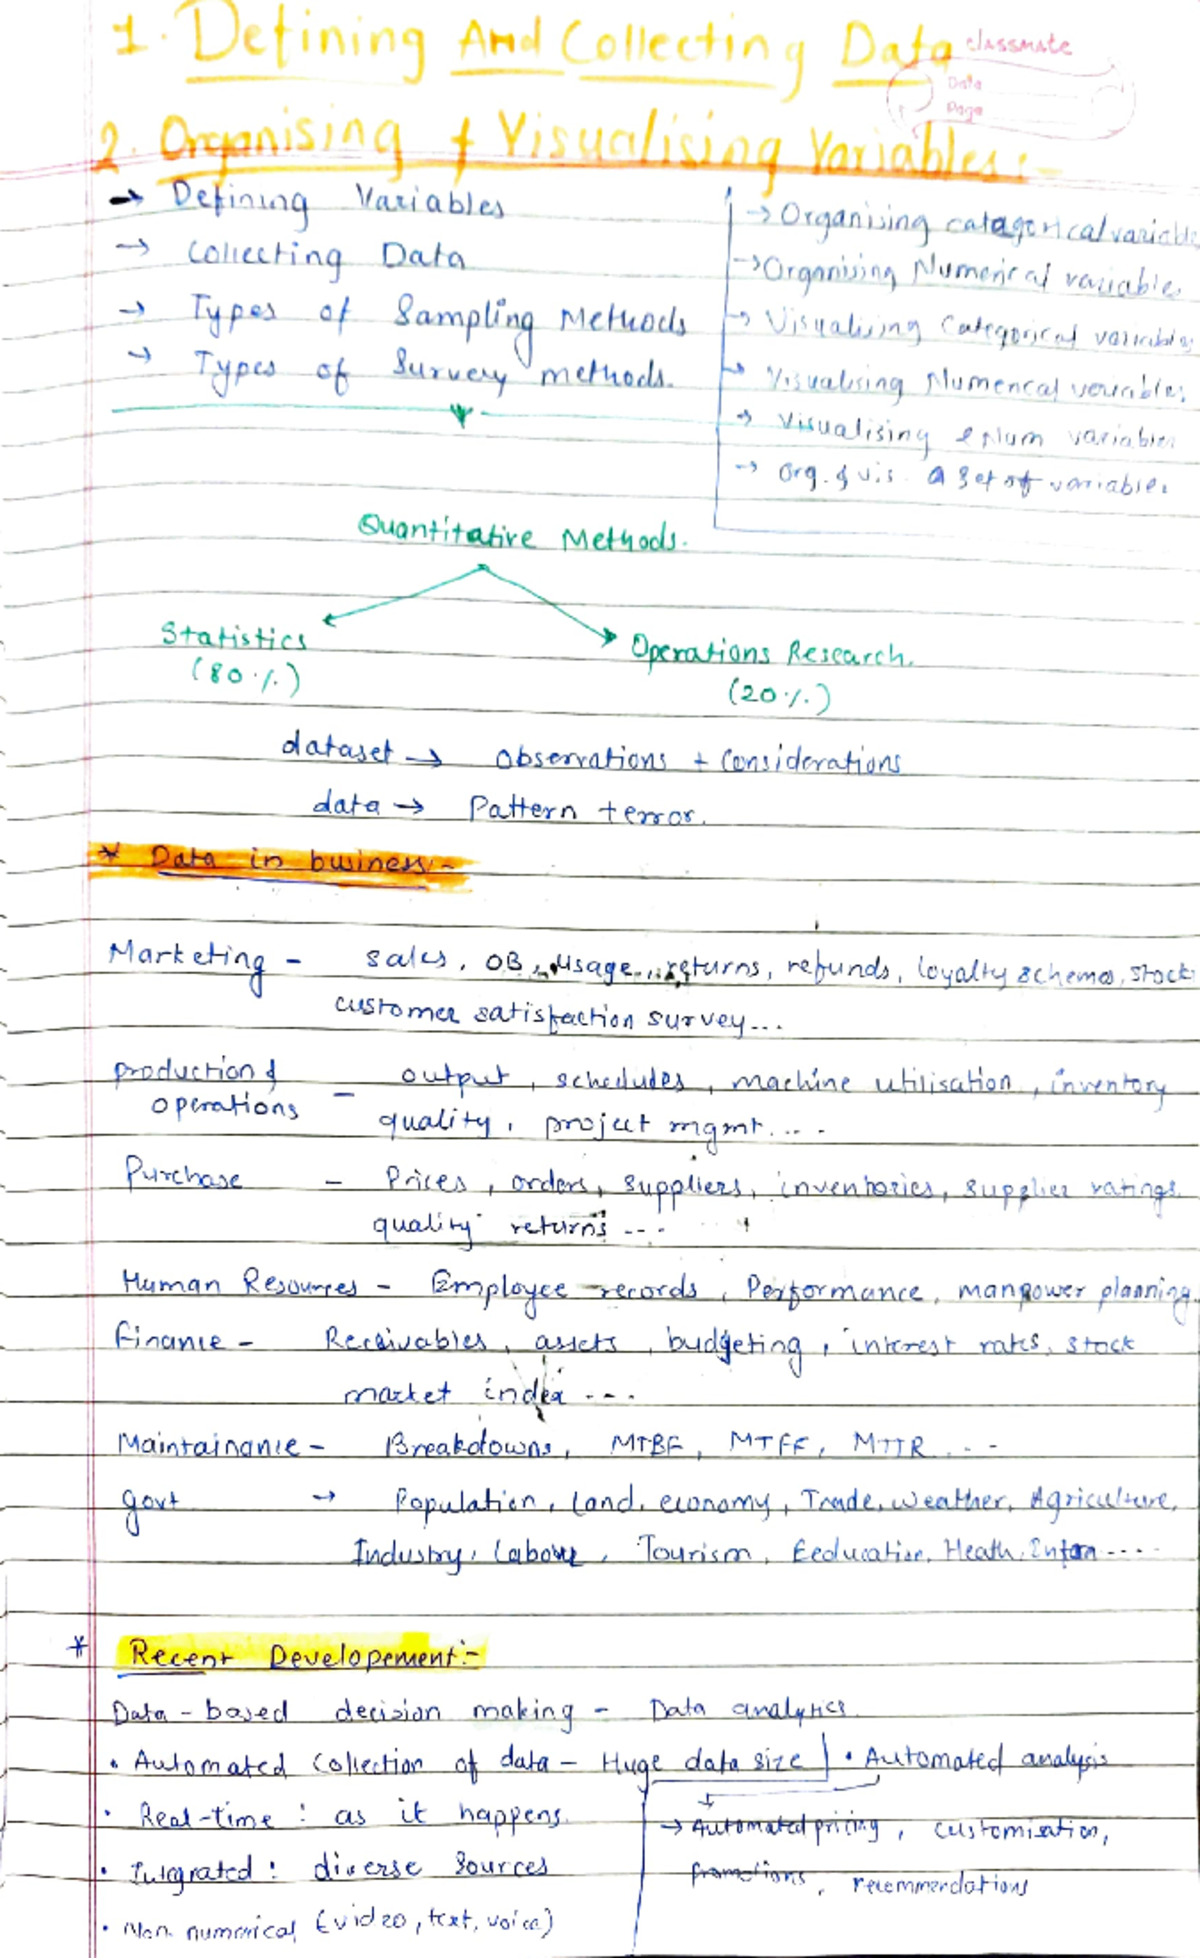 1. Defining And Collecting Data
classmate
Date
Page
2. Organising & Visualising Variables:-
→ Defining Variables
→ Collecting Data
→ Types of Sampling Methods
→ Types of Survey methods.
→ Organising catagorical variable
→ Organising Numerical variables
→ Visualising Categorical variables
→ Visualising Numerical variables
→ Visualising 2 Num variables
→ Org. & vis. a set of variables
Quantitative Methods.
Statistics
(80%)
Operations Research.
(20%)
dataset → Observations + Considerations
data → Pattern + error.
* Data in business:-
Marketing - sales, OB, usage, returns, refunds, loyalty schemes, stock
customer satisfaction survey...
production &
operations - output, schedules, machine utilisation, inventory
quality, project mgmt....
Purchase - Prices, orders, suppliers, inventories, supplier ratings.
quality returns ...
Human Resources - Employee records, Performance, manpower planning.
finance - Receivables, assets, budgeting, interest rates, stock
market index ...
Maintainance - Breakdowns, MTBF, MTFF, MTTR ...
govt → Population, land, economy, Trade, weather, Agriculture,
Industry, Labour, Tourism, Eeducation, Heath, Infra ....
* Recent Developement:-
Data-based decision making - Data analytics
• Automated collection of data - Huge data size
• Automated analysis
• Real-time : as it happens.
→ Automated pricing, customisation,
promotions, recommendations
• Integrated : diverse sources
• Non numerical (video, text, voice)